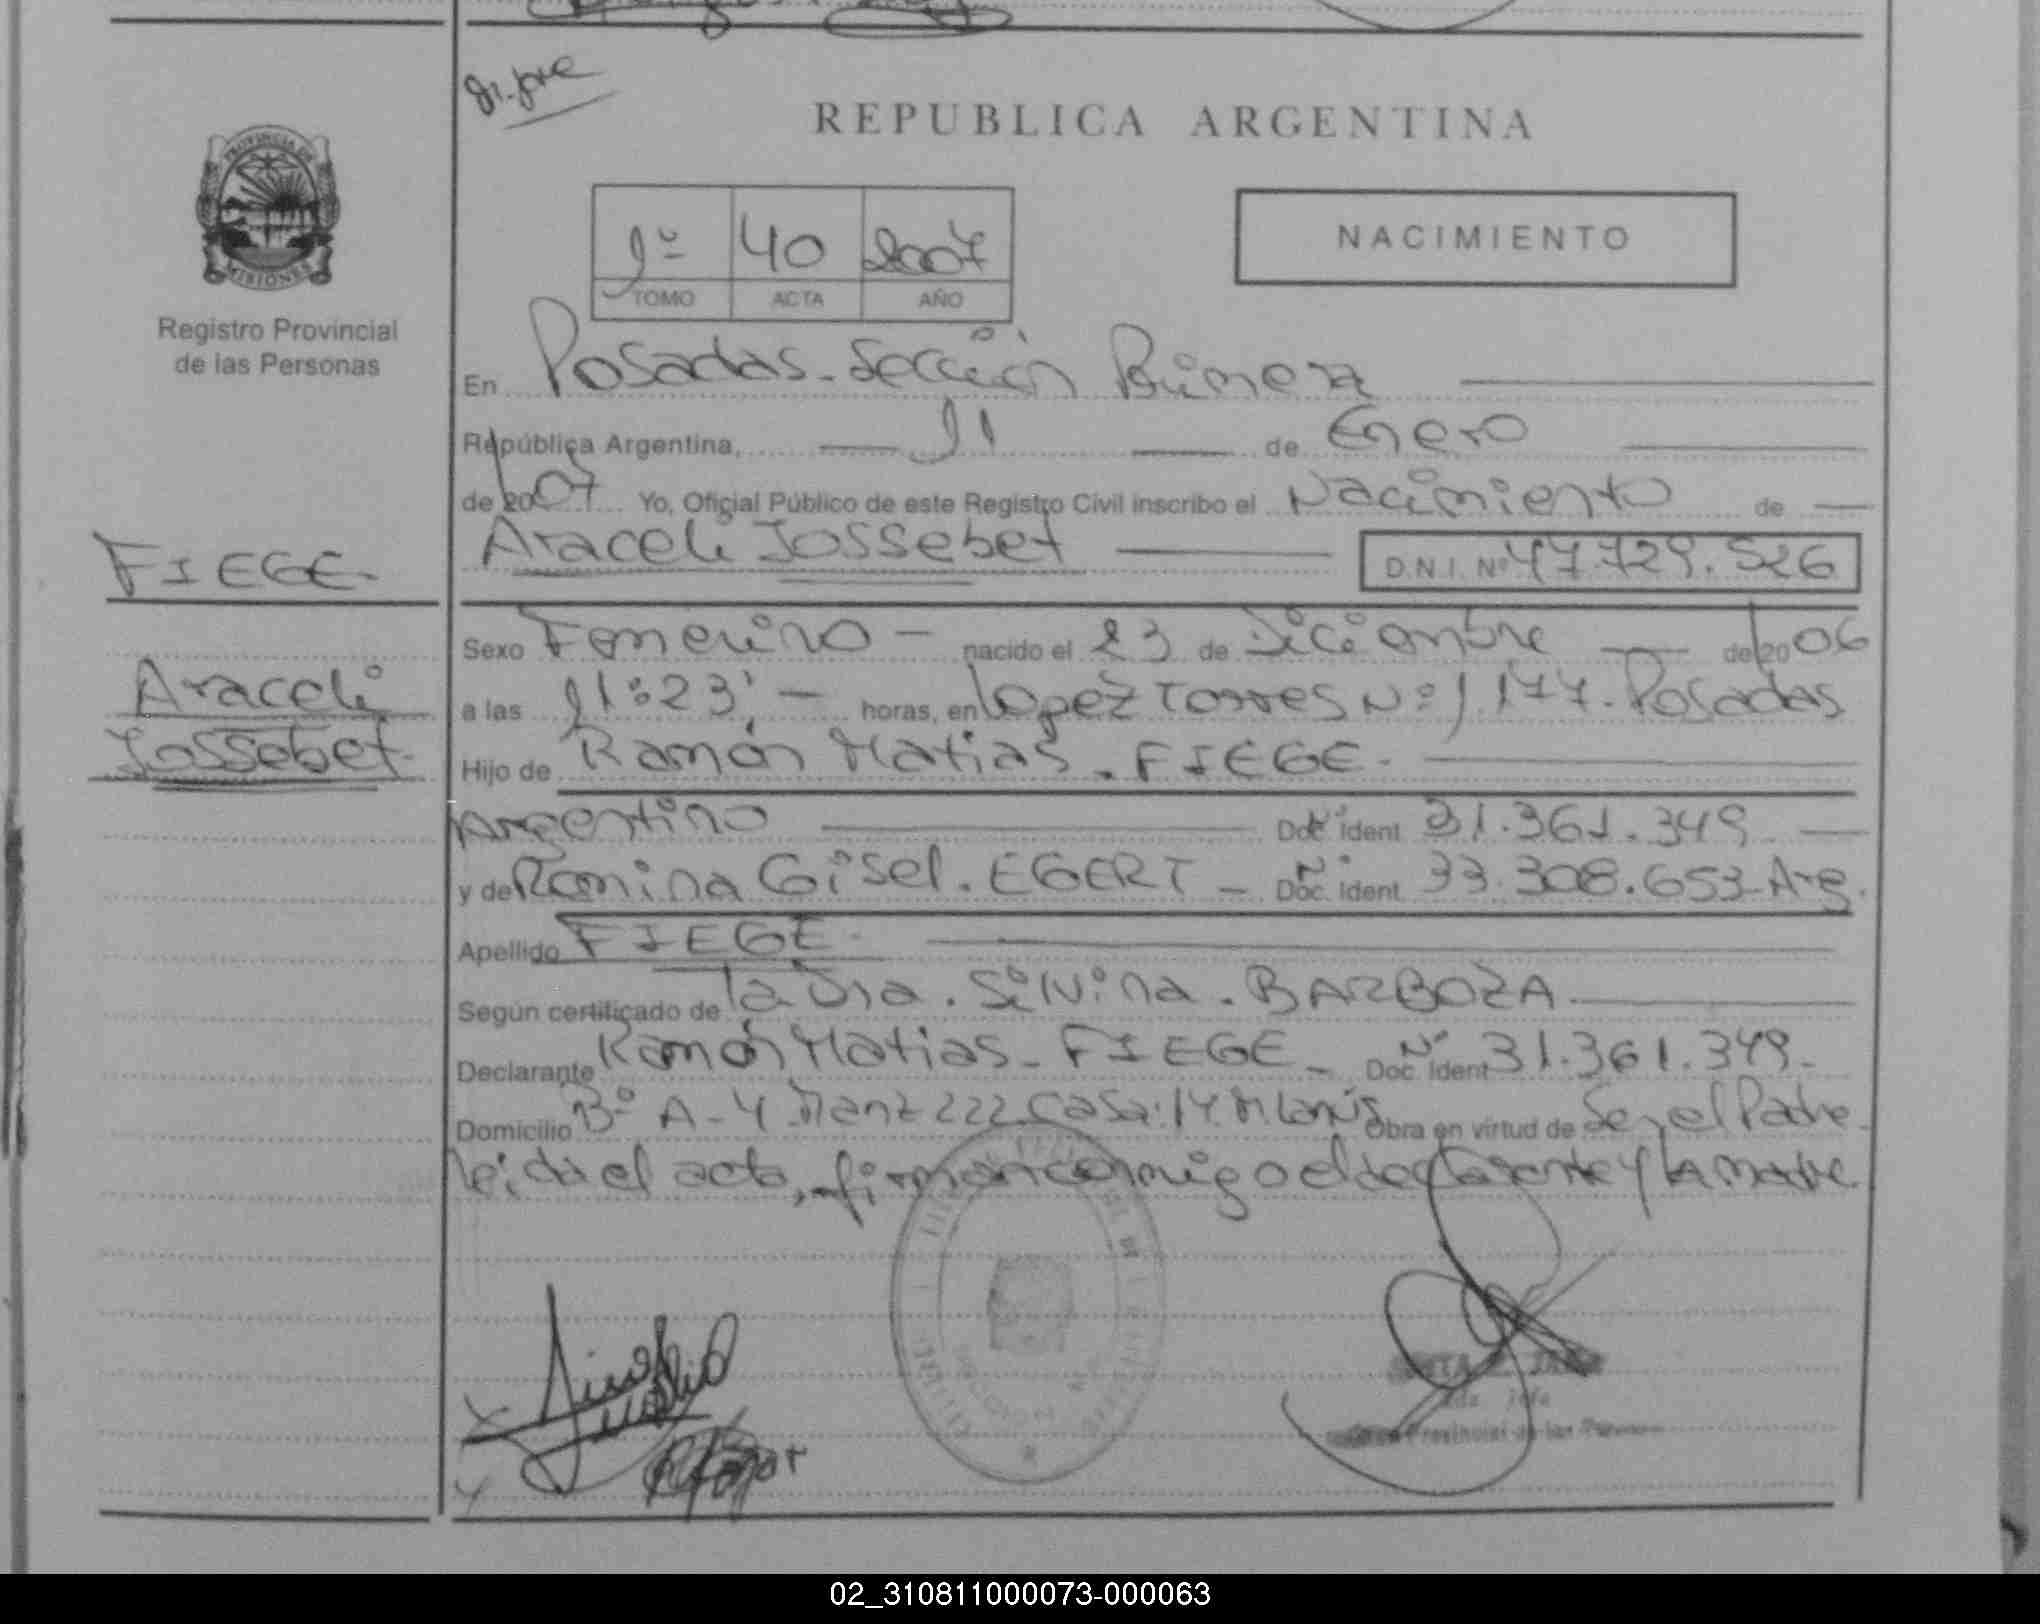 REPUBLICA ARGENTINA
PROVINCIA DE
MISIONES
Registro Provincial
de las Personas
1º 40 2007
TOMO ACTA AÑO
NACIMIENTO
En Posadas - Sección Primera
República Argentina, 11 de Enero
de 2007 Yo, Oficial Público de este Registro Civil inscribo el Nacimiento de
Araceli Jossebet
D.N.I. Nº 47.729.526
FIEGE
Araceli
Jossebet
Sexo Femenino - nacido el 23 de Diciembre de 2006
a las 11:23' - horas, en Lopez Torres Nº 1.177. Posadas
Hijo de Ramón Matias. FIEGE.
Argentino Doc. Ident. 31.361.349
y de Romina Gisel. EGERT - Doc. Ident. 33.308.653 Arg.
Apellido FIEGE.
Según certificado de la Dra. Silvina. BARBOZA
Declarante Ramón Matias - FIEGE - Doc. Ident 31.361.349.
Domicilio Bº A-4 Manz 222 Casa: 14 Obra en virtud de Ser el Padre
leida el acta, firman conmigo el declarante y la madre
02_310811000073-000063